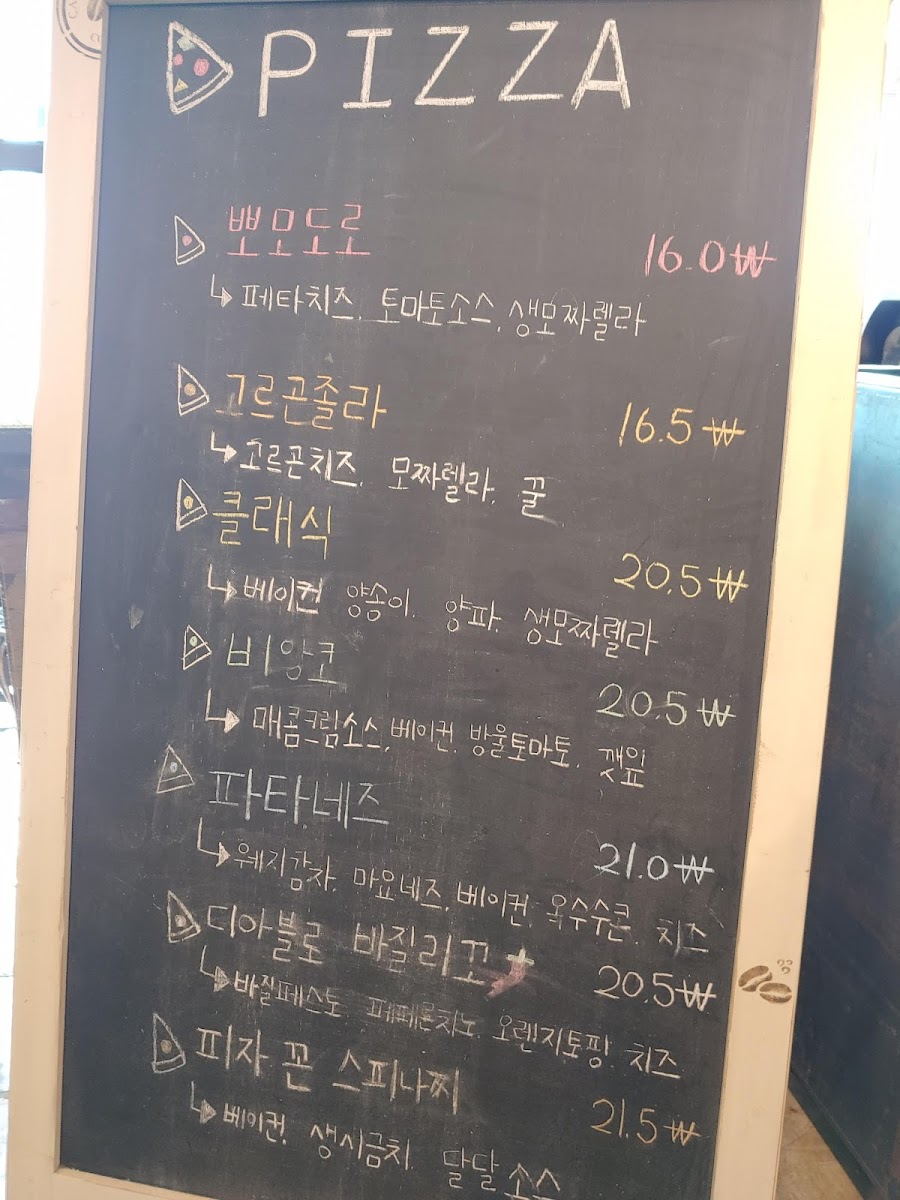 PIZZA
뽀모도로 16.0₩
페타치즈, 토마토소스, 생모짜렐라
고르곤졸라 16.5₩
고르곤치즈, 모짜렐라, 꿀
클래식 20.5₩
베이컨 양송이, 양파, 생모짜렐라
비앙코 20.5₩
매콤크림소스, 베이컨, 방울토마토, 깻잎
파타네즈 21.0₩
웨지감자, 마요네즈, 베이컨, 옥수수콘, 치즈
디아블로 바질리꼬 20.5₩
바질페스토, 페페론치노, 오렌지토핑, 치즈
피자 꼰 스피나찌 21.5₩
베이컨, 생시금치, 달달소스